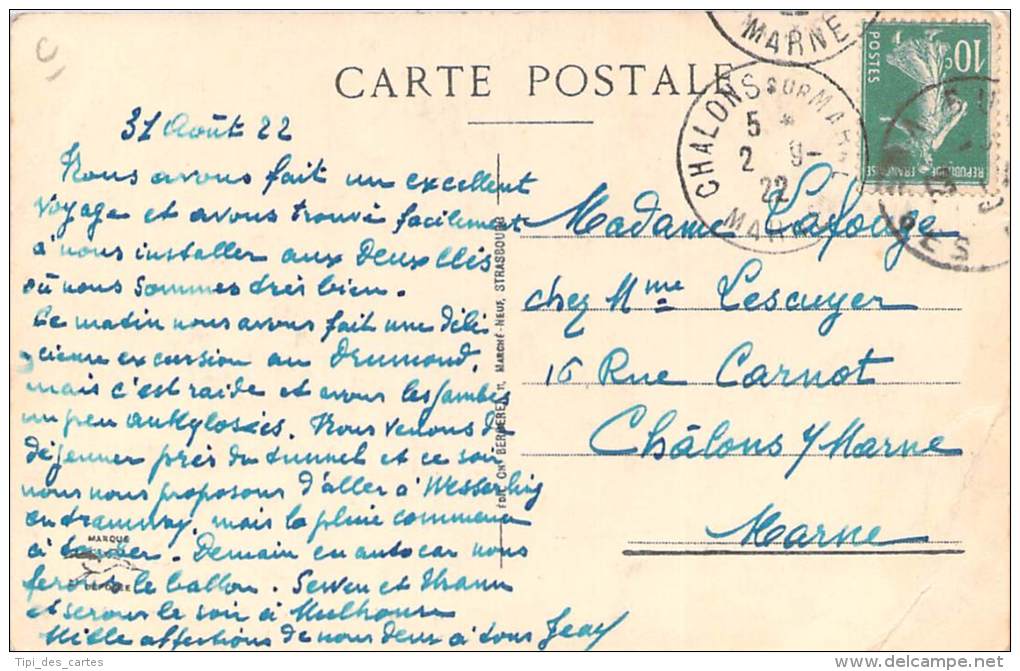 CARTE POSTALE
31 Août 22
Nous avons fait un excellent
voyage et avons trouvé facilement
à nous installer aux Deux Clés
où nous sommes très bien.
Ce matin nous avons fait une déli
cieuse excursion au Drumond,
mais c'est raide et avons les jambes
un peu ankylosées. Nous venons de
déjeuner près du tunnel et ce soir
nous nous proposons d'aller à Wesserling
en tramway, mais la pluie commence
à tomber. Demain en autocar nous
ferons le ballon. Sewen et Thann
et serons le soir à Mulhouse
Mille affections de nous deux à tous Jean
MARQUE
DÉPOSÉE
ÉDIT. CH. BERGERET, 11, MARCHÉ-NEUF, STRASBOURG
MARNE
CHALONS SUR MARNE
5 *
2 9-
22
MARNE
10c
POSTES
REPUBLIQUE FRANÇAISE
Madame Lafouge
chez Mme Lescuyer
16 Rue Carnot
Châlons s/Marne
Marne
Tipi_des_cartes
www.delcampe.net